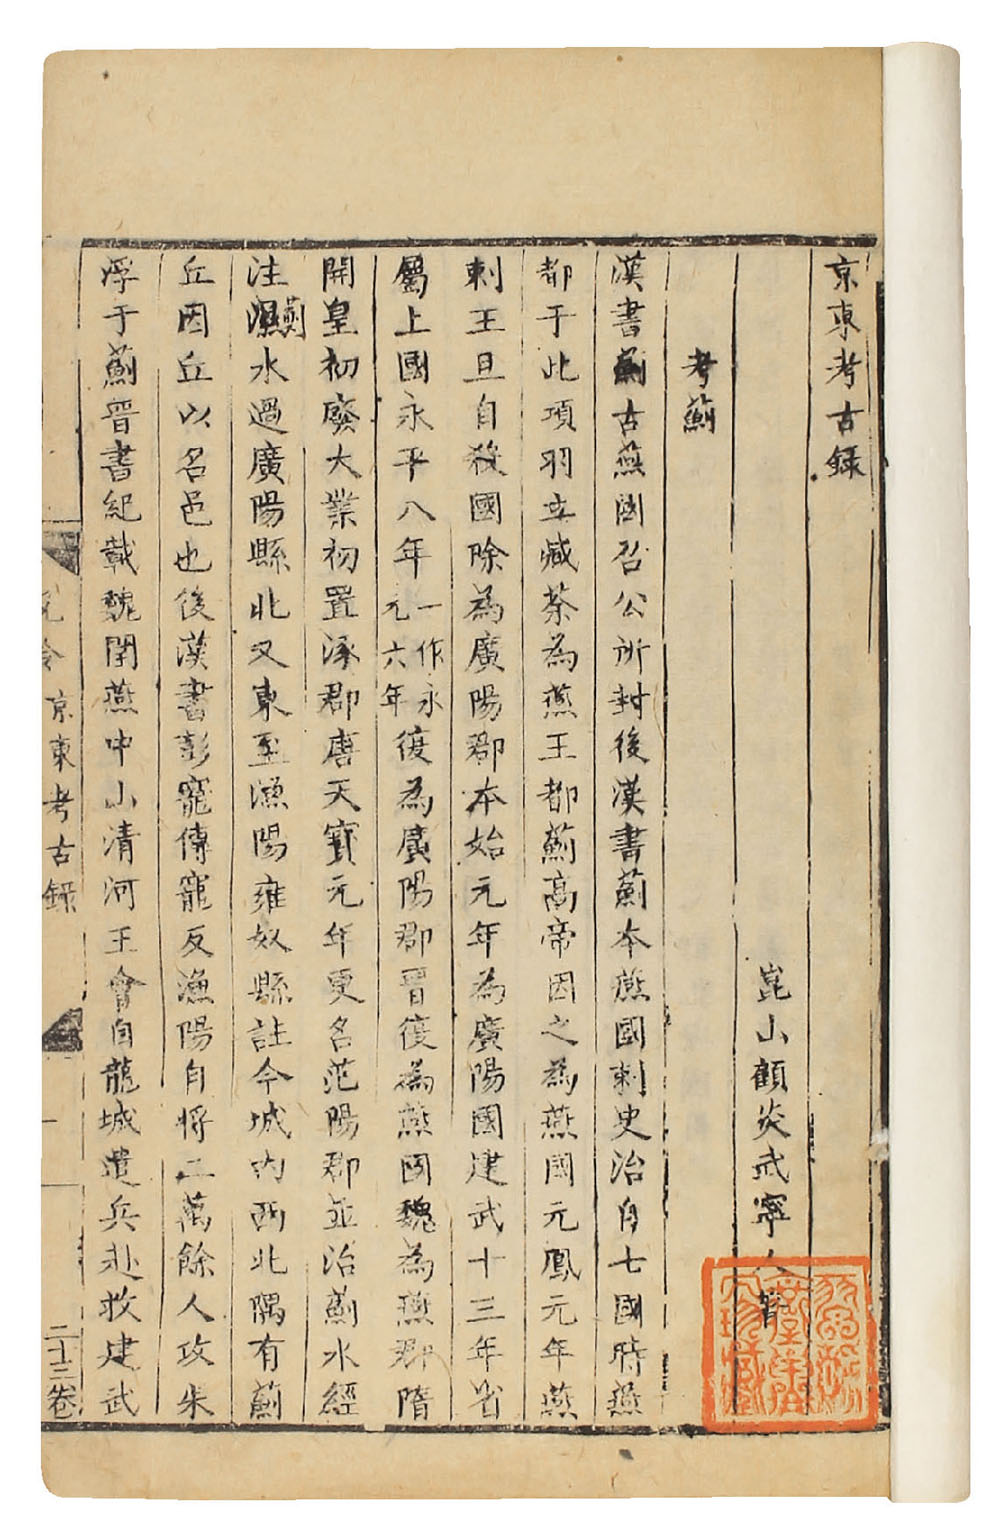 京東考古録
崑山顧炎武寧人著
考薊
漢書薊古燕國召公所封後漢書薊本燕國刺史治自七國時燕
都于此項羽立臧荼為燕王都薊高帝因之為燕國元鳳元年燕
剌王旦自殺國除為廣陽郡本始元年為廣陽國建武十三年省
屬上國永平八年一作永元六年復為廣陽郡晋復為燕國魏為燕郡隋
開皇初廢大業初置涿郡唐天寶元年更名范陽郡並治薊水經
注㶟薊水過廣陽縣北又東至漁陽雍奴縣註今城内西北隅有薊
丘因丘以名邑也後漢書彭寵傳寵反漁陽自將二萬餘人攻朱
浮于薊晋書紀載魏閔燕中山清河王會自龍城遣兵赴救建武
説鈴 京東考古録 二十三卷